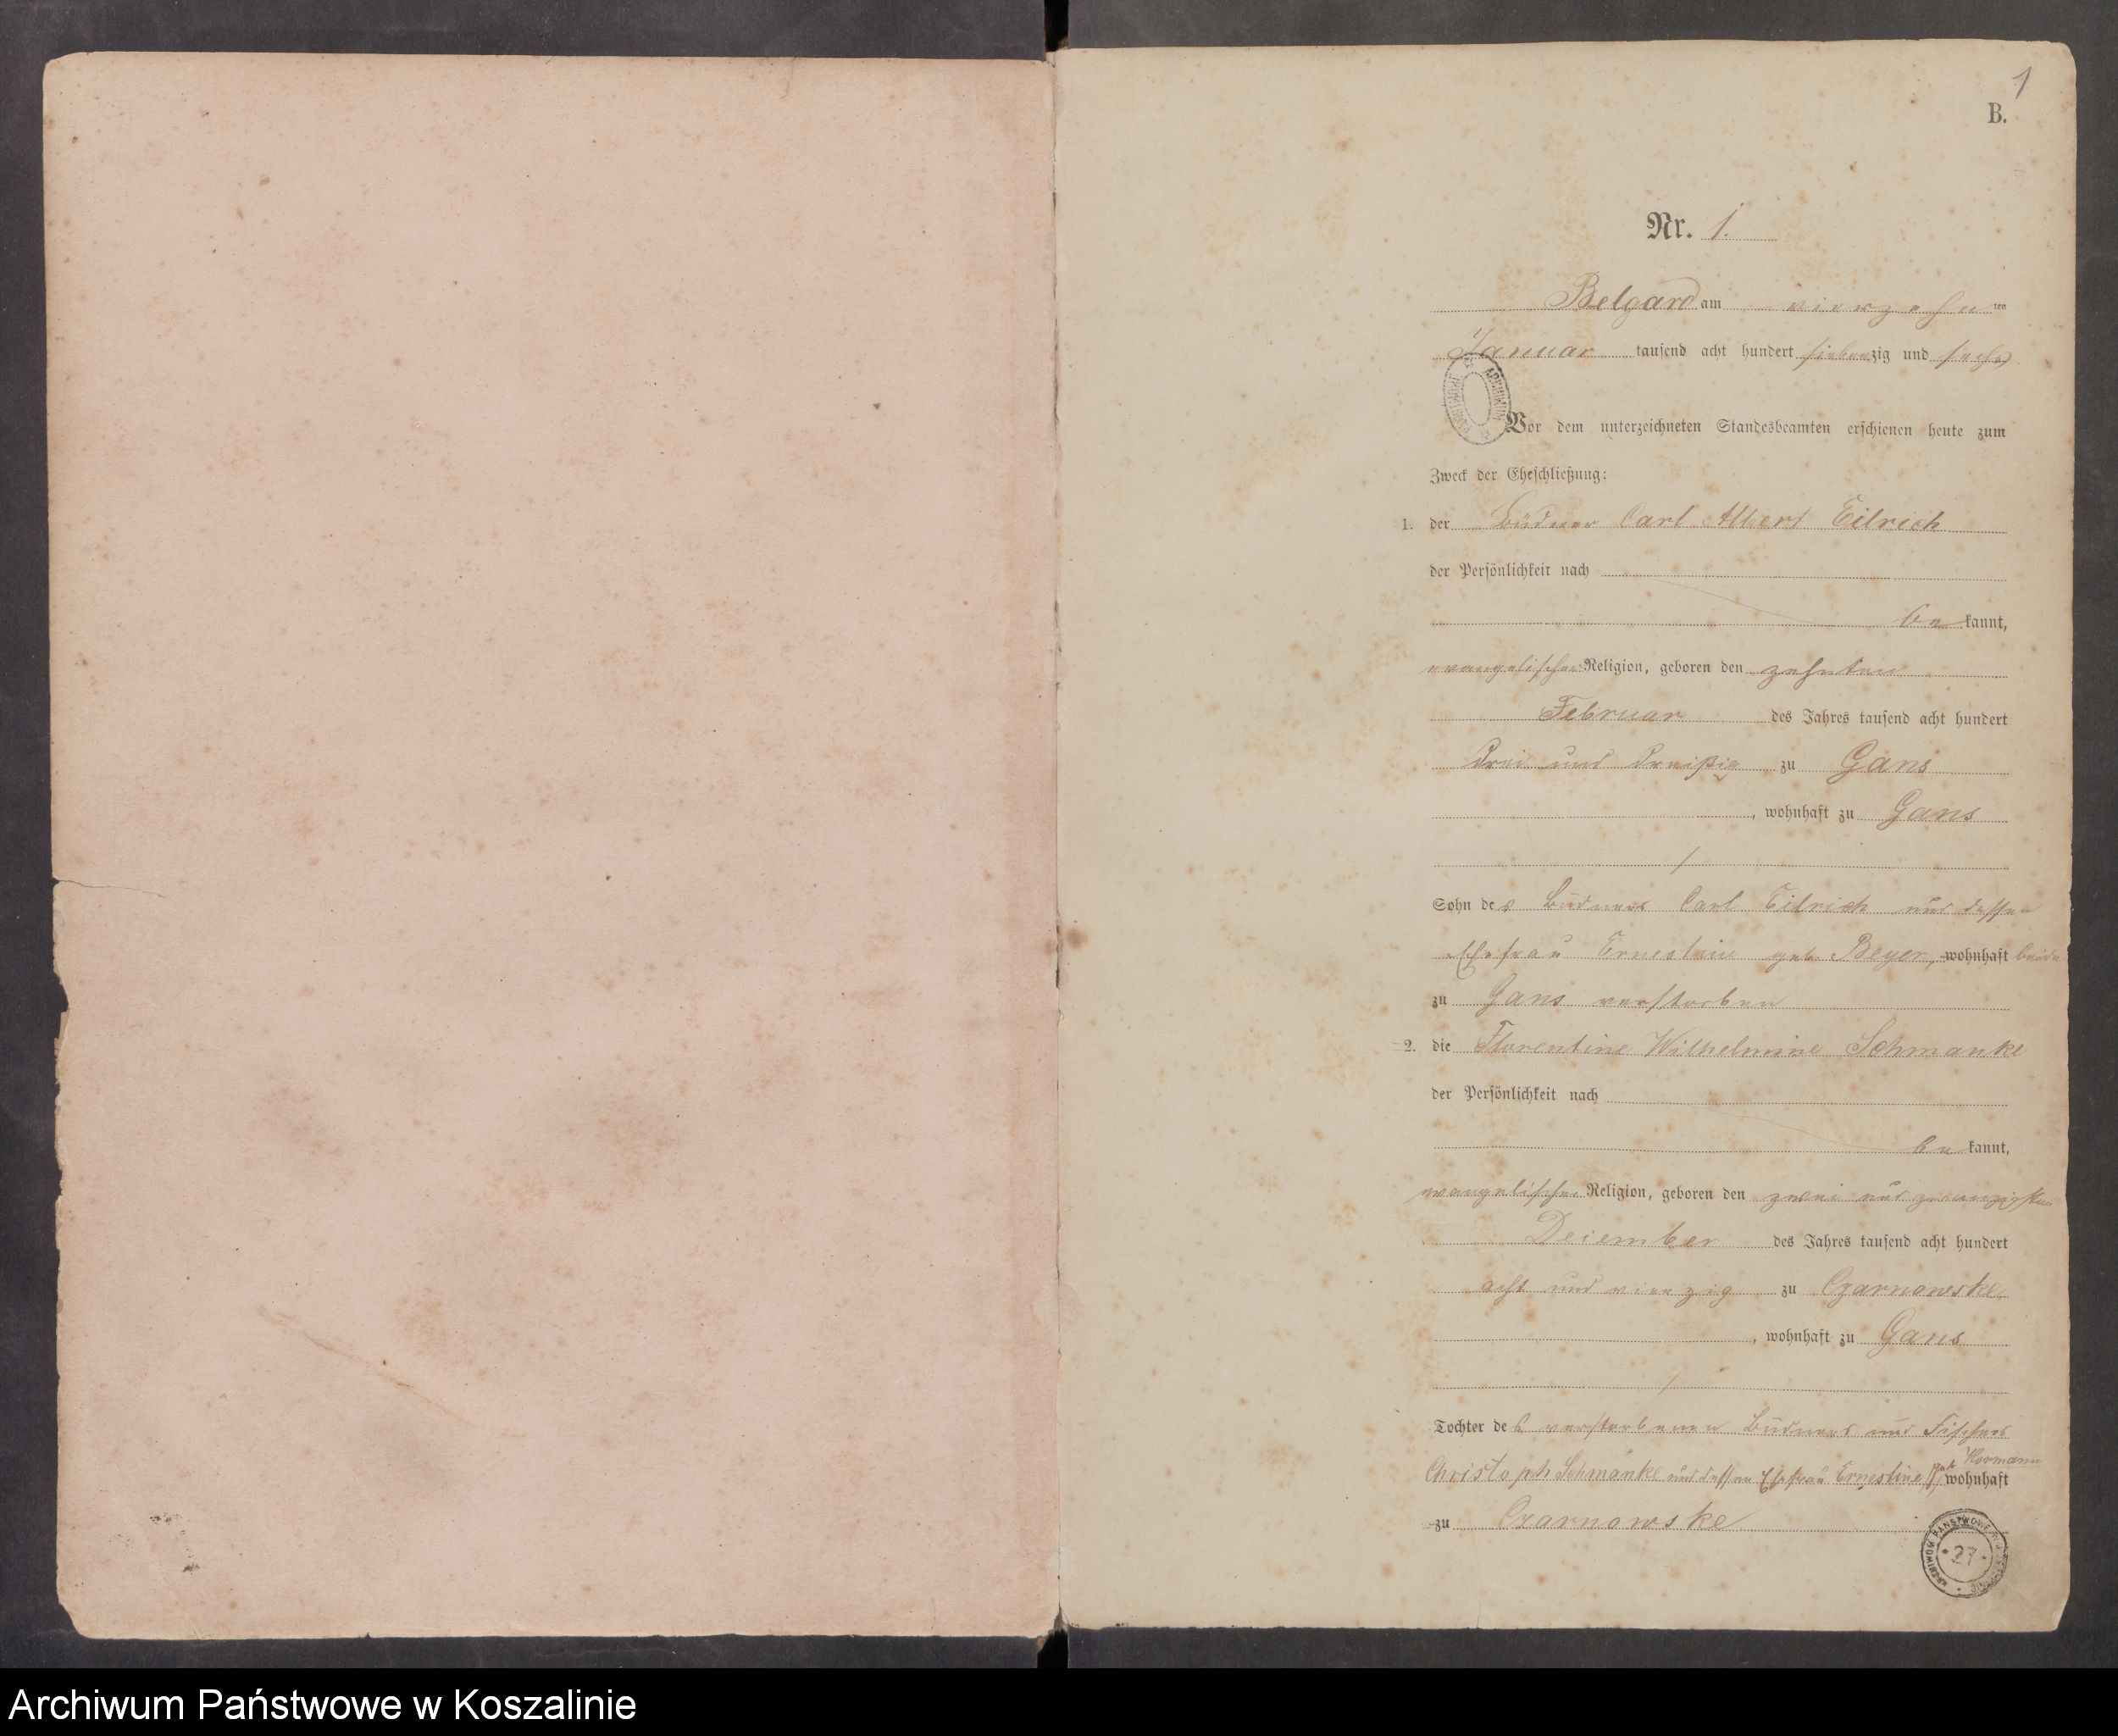 1
B.
Nr. 1.
Belgard am vierzehnten
Januar tausend acht hundert siebenzig und sechs
Vor dem unterzeichneten Standesbeamten erschienen heute zum
Zweck der Eheschließung:
1. der Büdner Carl Albert Eilrich
der Persönlichkeit nach
bekannt,
evangelischer Religion, geboren den zehnten
Februar des Jahres tausend acht hundert
drei und dreißig zu Gans
, wohnhaft zu Gans
Sohn des Büdners Carl Eilrich und dessen
Ehefrau Ernestine geb. Beyer, wohnhaft beide
zu Gans verstorben
2. die Florentine Wilhelmine Schmanke
der Persönlichkeit nach
bekannt,
evangelischer Religion, geboren den zwei und zwanzigsten
Dezember des Jahres tausend acht hundert
acht und vierzig zu Czarnowske
, wohnhaft zu Gans
Tochter des verstorbenen Büdners und Fischers
Christoph Schmanke und dessen Ehefrau Ernestine geb. wohnhaft
zu Czarnowske
ARCHIWUM PAŃSTWOWE
27
Archiwum Państwowe w Koszalinie